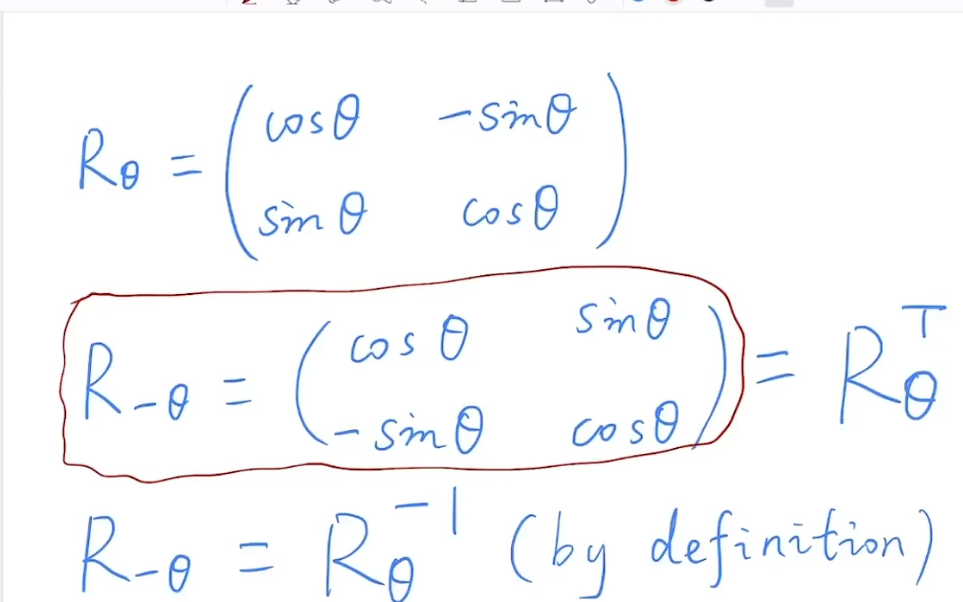 Rθ = ( cosθ -sinθ
sinθ cosθ )
R-θ = ( cosθ sinθ
-sinθ cosθ ) = Rθ^T
R-θ = Rθ^-1 (by definition)